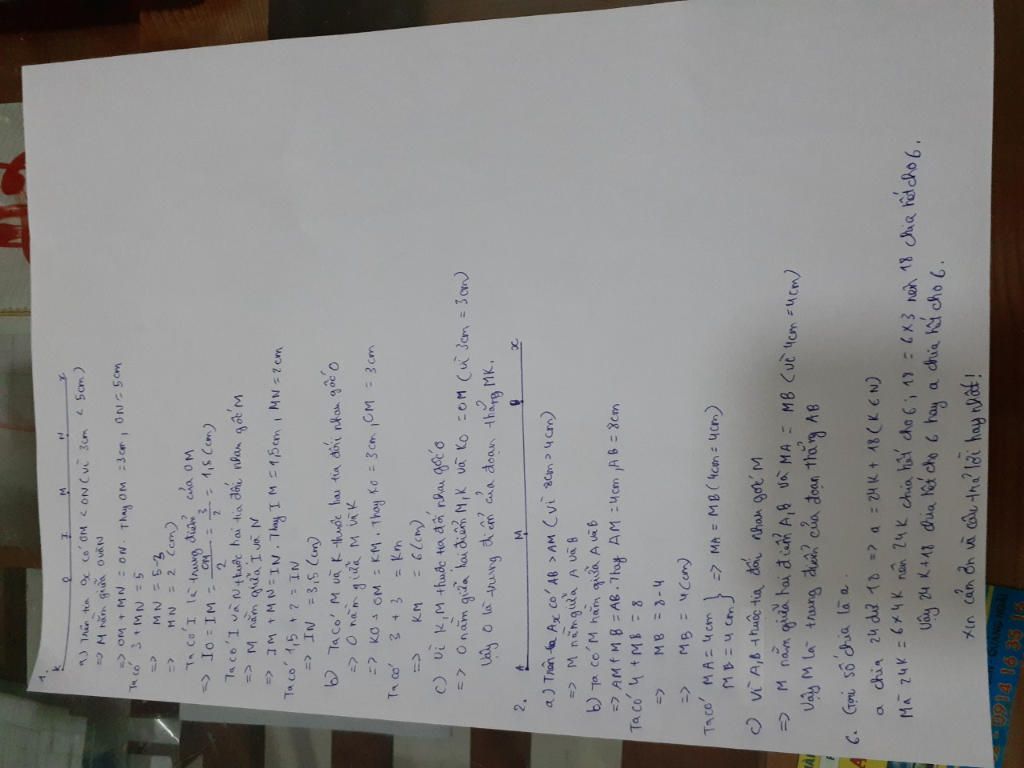 1.
K O I M N x
a) Trên tia Ox có OM < ON (vì 3cm < 5cm)
=> M nằm giữa O và N
=> OM + MN = ON. Thay OM = 3cm, ON = 5cm
Ta có 3 + MN = 5
=> MN = 5-3
=> MN = 2 (cm)
Ta có I là trung điểm của OM
=> IO = IM = OM/2 = 3/2 = 1,5 (cm)
Ta có I và N thuộc hai tia đối nhau gốc M
=> M nằm giữa I và N
=> IM + MN = IN. Thay IM = 1,5cm, MN = 2cm
Ta có 1,5 + 2 = IN
=> IN = 3,5 (cm)
b) Ta có M và K thuộc hai tia đối nhau gốc O
=> O nằm giữa M và K
=> KO + OM = KM. Thay KO = 3cm, OM = 3cm
Ta có 3 + 3 = KM
=> KM = 6 (cm)
c) Vì K, M thuộc tia đối nhau gốc O
=> O nằm giữa hai điểm M, K và KO = OM (vì 3cm = 3cm)
Vậy O là trung điểm của đoạn thẳng MK.
2.
A M B x
a) Trên tia Ax có AB > AM (vì 8cm > 4cm)
=> M nằm giữa A và B
b) Ta có M nằm giữa A và B
=> AM + MB = AB. Thay AM = 4cm, AB = 8cm
Ta có 4 + MB = 8
=> MB = 8-4
=> MB = 4(cm)
Ta có MA = 4cm
MB = 4cm } => MA = MB (4cm = 4cm)
c) Vì A, B thuộc tia đối nhau gốc M
=> M nằm giữa hai điểm A, B và MA = MB (vì 4cm = 4cm)
Vậy M là trung điểm của đoạn thẳng AB
6. Gọi số chia là a.
a chia 24 dư 18 => a = 24K + 18 (K ∈ N)
Mà 24K = 6 x 4K nên 24K chia hết cho 6; 18 = 6 x 3 nên 18 chia hết cho 6.
Vậy 24K + 18 chia hết cho 6 hay a chia hết cho 6.
Xin cảm ơn và câu trả lời hay nhất!
0914 16 35 18